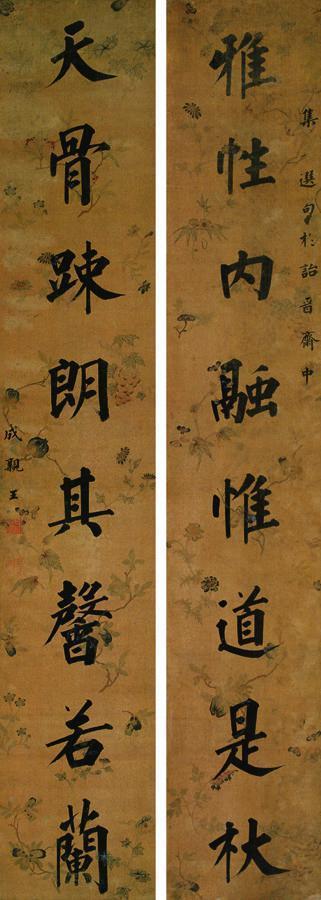 集選句於詒晉齋中
雅性内融惟道是杖
天骨踈朗其馨若蘭
成親王